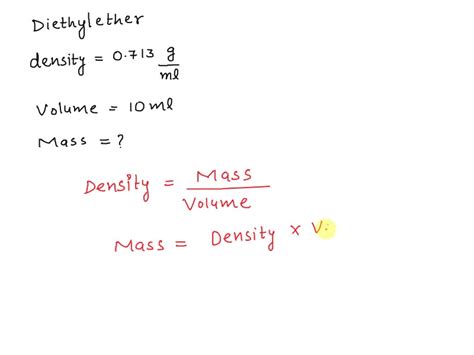 Diethylether
density = 0.713 g/ml
Volume = 10 ml
Mass = ?
Density = Mass / Volume
Mass = Density × V